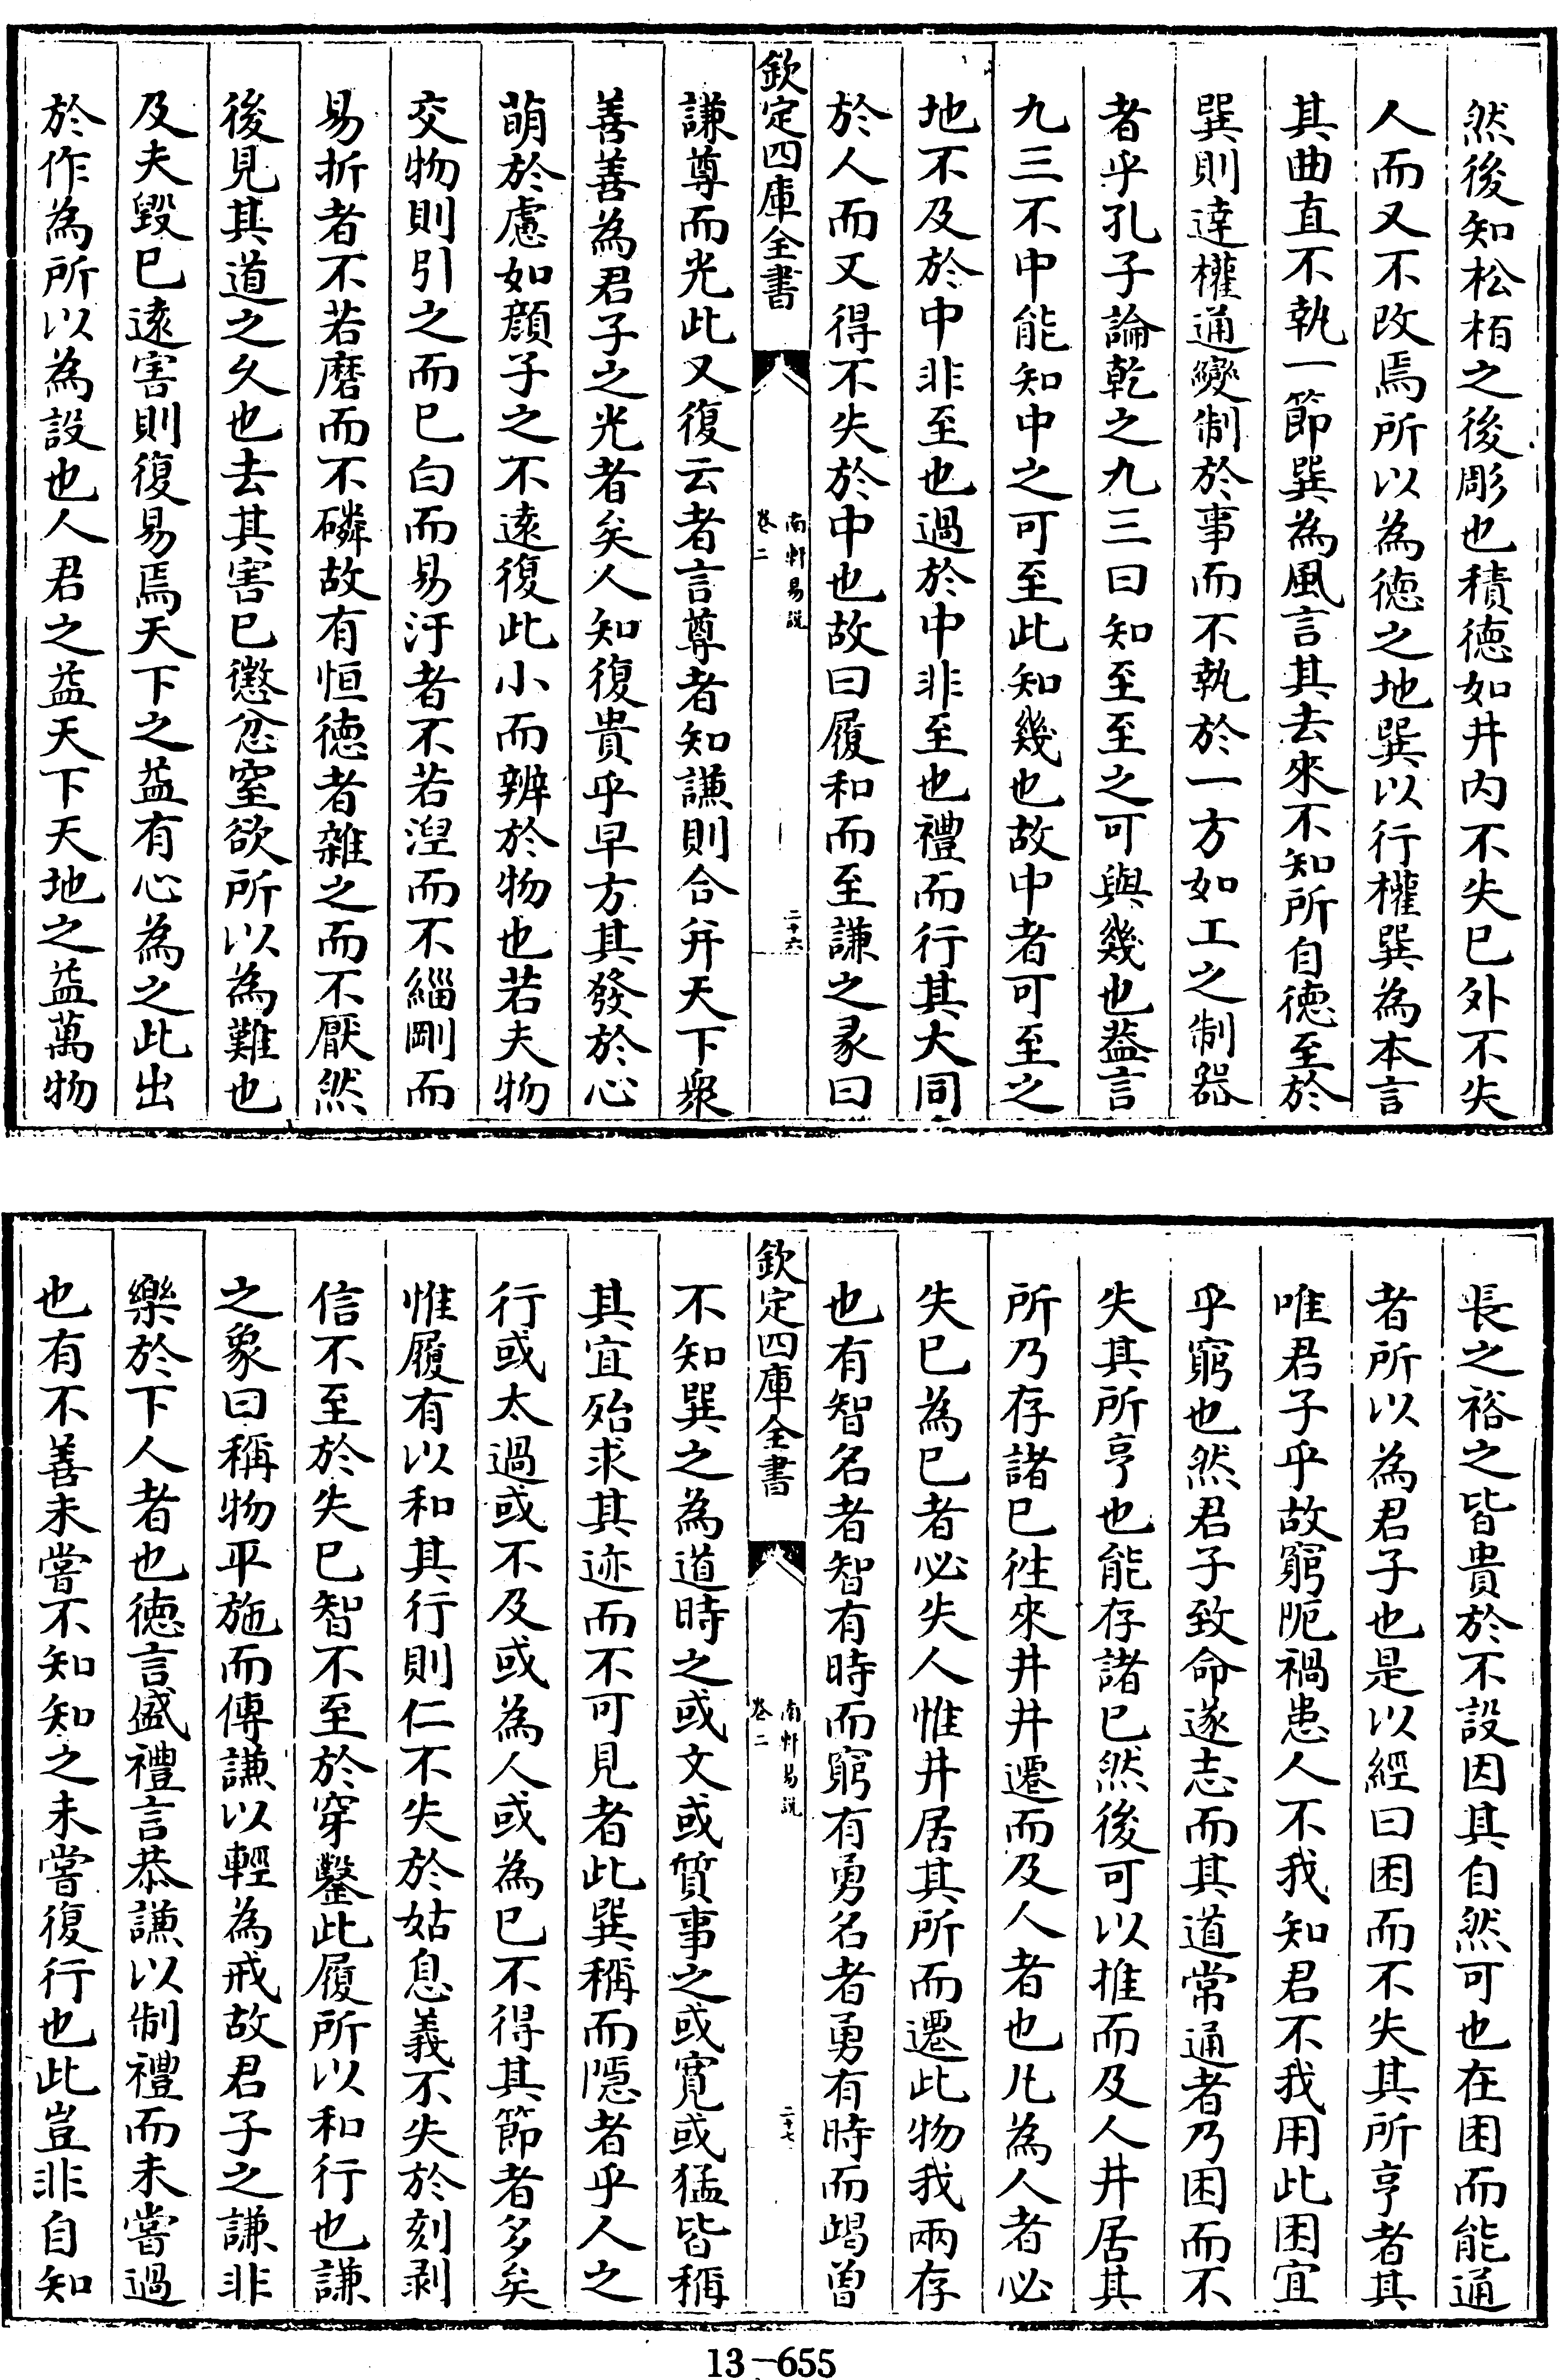 然後知松栢之後彫也積德如井内不失已外不失
人而又不改焉所以為德之地巽以行權巽為本言
其曲直不執一節巽為風言其去來不知所自德至於
巽則達權通變制於事而不執於一方如工之制器
者乎孔子論乾之九三曰知至至之可與幾也葢言
九三不中能知中之可至此知幾也故中者可至之
地不及於中非至也過於中非至也禮而行其大同
於人而又得不失於中也故曰履和而至謙之彖曰
欽定四庫全書
南軒易説
卷二
二十六
謙尊而光此又復云者言尊者知謙則合弁天下衆
善善為君子之光者矣人知復貴乎早方其發於心
萌於慮如顔子之不逺復此小而辨於物也若夫物
交物則引之而已白而易汙者不若湼而不緇剛而
易折者不若磨而不磷故有恒德者雜之而不厭然
後見其道之久也去其害已懲忿窒欲所以為難也
及夫毀已逺害則復易焉天下之益有心為之此出
於作為所以為設也人君之益天下天地之益萬物
長之裕之皆貴於不設因其自然可也在困而能通
者所以為君子也是以經曰困而不失其所亨者其
唯君子乎故窮阨禍患人不我知君不我用此困宜
乎窮也然君子致命遂志而其道常通者乃困而不
失其所亨也能存諸已然後可以推而及人井居其
所乃存諸已徃來井井遷而及人者也凡為人者必
失已為已者必失人惟井居其所而遷此物我兩存
也有智名者智有時而窮有勇名者勇有時而竭曽
欽定四庫全書
南軒易説
卷二
二十七
不知巽之為道時之或文或質事之或寛或猛皆稱
其宜殆求其迹而不可見者此巽稱而隱者乎人之
行或太過或不及或為人或為已不得其節者多矣
惟履有以和其行則仁不失於姑息義不失於刻剥
信不至於失已智不至於穿鑿此履所以和行也謙
之象曰稱物平施而傳謙以輕為戒故君子之謙非
樂於下人者也德言盛禮言恭謙以制禮而未嘗過
也有不善未嘗不知知之未嘗復行也此豈非自知
13-655